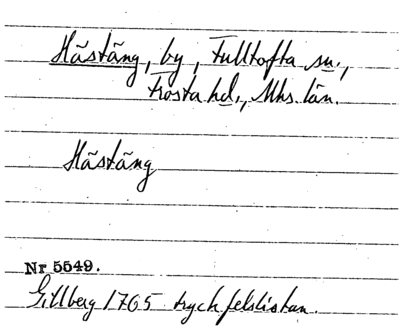 Hästäng, by, Fulltofta sn.,
Frosta hd., Mhs. län.
Hästäng
Nr 5549.
Gillberg 1765 tryckfelslistan.